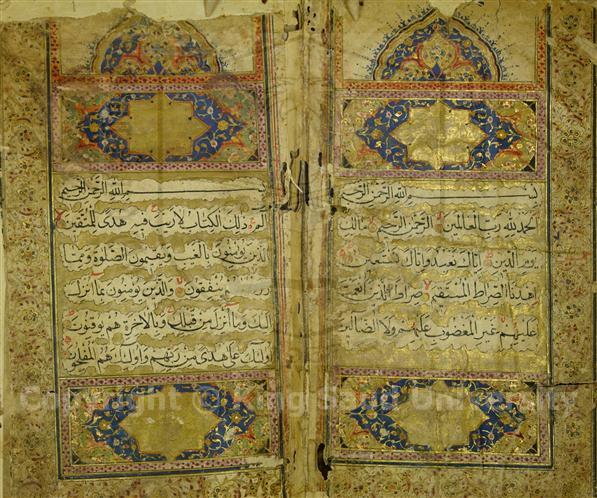 بسم الله الرحمن الرحيم
الحمد لله رب العالمين الرحمن الرحيم مالك
يوم الدين اياك نعبد واياك نستعين
اهدنا الصراط المستقيم صراط الذين انعمت
عليهم غير المغضوب عليهم ولا الضالين
بسم الله الرحمن الرحيم
الم ذلك الكتاب لا ريب فيه هدى للمتقين
الذين يؤمنون بالغيب ويقيمون الصلوة ومما
رزقناهم ينفقون والذين يؤمنون بما انزل
اليك وما انزل من قبلك وبالاخرة هم يوقنون
اولئك على هدى من ربهم واولئك هم المفلحون
Copyright © King Saud University